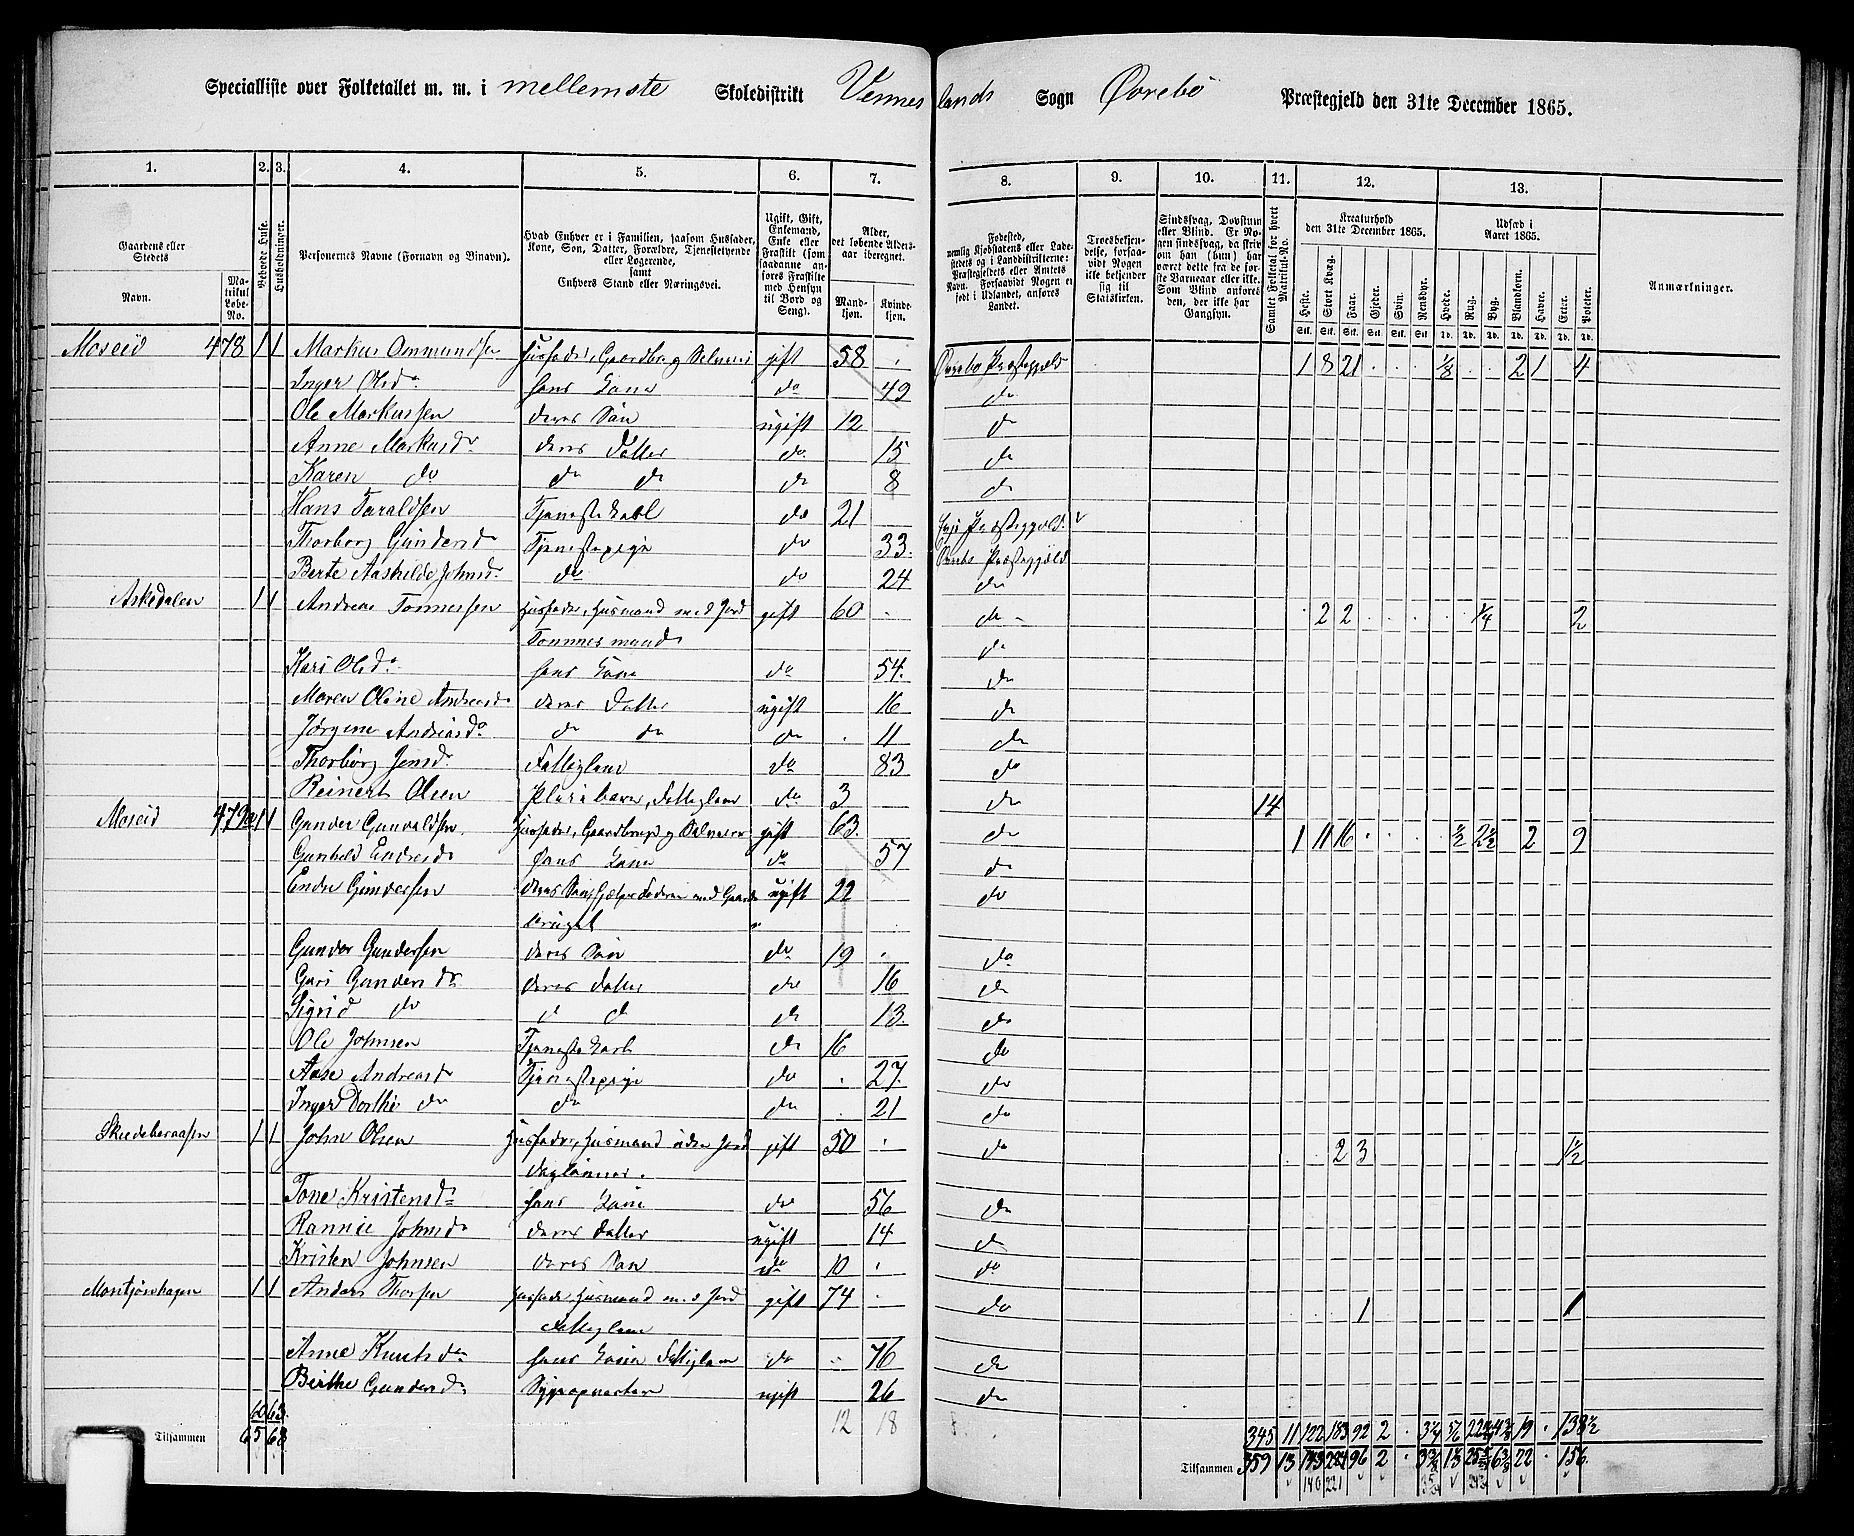 Specialliste over Folketallet m. m. i mellemste Skoledistrikt Vennes lands Sogn Øvrebö Præstegjeld den 31te December 1865.
1. 2. 3. 4. 5. 6. 7. 8. 9. 10. 11. 12. 13.
Gaardens eller Stedets Navn. Matrikul Løbe-No. Beboede Huse. Husholdninger. Personernes Navne (Fornavn og Binavn). Hvad Enhver er i Familien, saasom Husfader, Kone, Søn, Datter, Forældre, Tjenestetyende eller Logerende, samt Enhvers Stand eller Næringsvei. Ugift, Gift, Enkemand, Enke eller Fraskilt (som saadanne anføres Fraskilte med Hensyn til Bord og Seng). Alder, det løbende Alders-aar iberegnet. Mandkjøn. Kvindekjøn.
Fødested, nemlig Kjøbstadens eller Ladestedets og i Landdistrikterne: Præstegjeldets eller Amtets Navn. Forsaavidt Nogen er født i Udlandet, anføres Landet. Troesbekjendelse, forsaavidt Nogen ikke bekjender sig til Statskirken. Sindssvag, Døvstum eller Blind. Er Nogen sindssvag, da skrives om han (hun) har været dette fra de første Barneaar eller ikke. Som Blind anføres den, der ikke har Gangsyn. Samlet Folketal for hvert Matrikul-No. Kreaturhold den 31te December 1865. Heste. Stort Kvæg. Faar. Gjeder. Svin. Rensdyr. Udsæd i Aaret 1865. Hvede. Rug. Byg. Blandkorn. Havre. Erter. Poteter. Anmærkninger.
Moseid 478 1 1 Markus Ommundsen Husfader, Gaardbr. og Selveier gift 58 Øvrebø Præstegjeld 1 8 21 1/8 2 1 4
Inger Olsdr hans Kone do 49 do
Ole Markussen deres Søn ugift 12 do
Anne Markusdr deres Datter do 15 do
Karen do do do do 8 do
Hans Taraldsen Tjenestekarl do 21 Præstegjeld
Thorborg Gundersd Tjenestepige do 33 Øvrebø Præstegjeld
Berte Aashilde Johnsd do do 24 do
Askedalen 1 1 Andreas Tonnessen Husfader, Husmand med Jord gift 60 do 2 2 1/4 2
Tømmermand do
Kari Olsdr hans Kone do 54 do
Maren Oline Andreasd deres Datter ugift 16 do
Jørgine Andreasdr do do do 11 do
Thorborg Jensdr Fattiglem do 83 do
Reinert Olsen Pleiebarn, Fattiglem do 3 do 14
Moseid 479a 1 1 Gunder Gunvaldsen Husfader, Gaardbruger og Selveier gift 63 do 1 11 16 1/2 2 1/2 2 9
Gunhild Endresd hans Kone do 57 do
Endre Gundersen deres Søn, hjælper Faderen med Gaards ugift 22 do
bruget
Gunder Gundersen deres Søn do 19 do
Guri Gundersdr deres Datter do 16 do
Sigrid do do do do 13 do
Ole Johnsen Tjenestekarl do 16 do
Aase Andreasd Tjenestepige do 27 do
Inger Dorthe do do do 21 do
Skredebraaten 1 1 John Olsen Husfader, Husmand uden Jord gift 50 do 2 3 1 1/2
Daglønner.
Tone Kristensdr hans Kone do 56 do
Rannie Johnsd deres Datter ugift 14 do
Kristen Johnsen deres Søn do 10 do
Montjønhagen 1 1 Anders Thorsen Husfader, Husmand med Jord gift 74 do 1 1
Fattiglem
Anne Knutsdr hans Kone Fattiglem do 76 do
Birthe Gundersd ugift 26 do
60 63 12 18 345 11 122 183 92 2 3 1/4 5/6 19 138 1/2
Tilsammen 65 68 Tilsammen 359 13 96 2 22 156
140 221